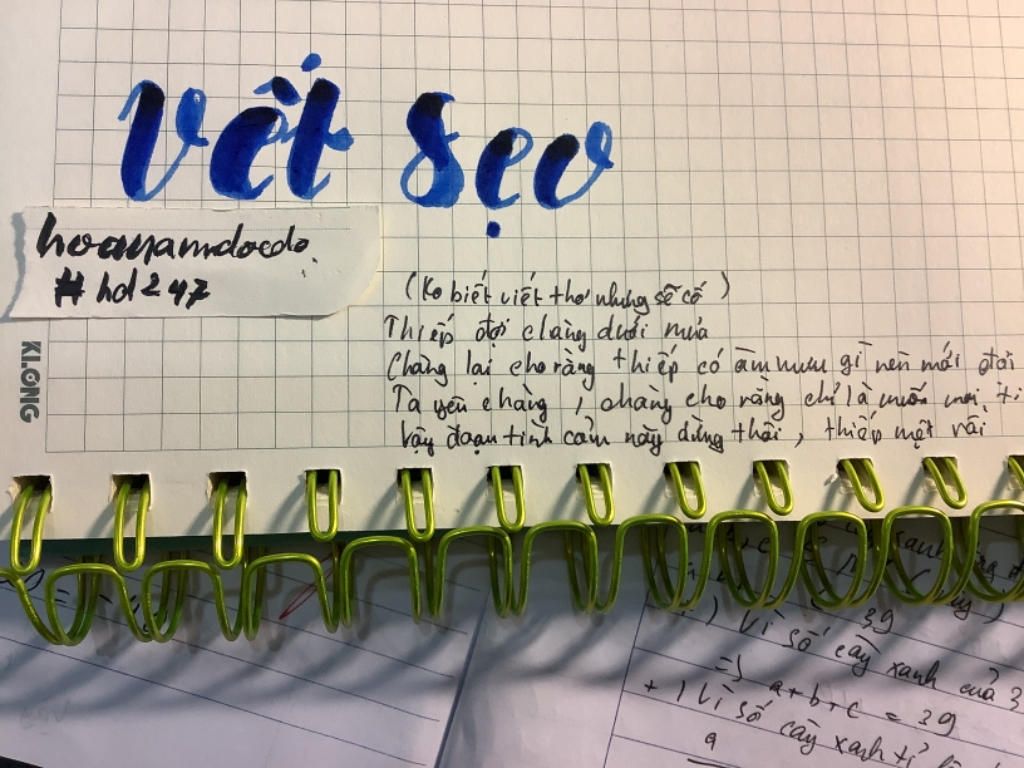 Vết Sẹo
hoanamdocdo
# hd247
KLONG
(Ko biết viết thơ nhưng sẽ cố)
Thiếp đợi chàng dưới mưa
Chàng lại cho rằng thiếp có âm mưu gì nên mới đợi
Ta yêu chàng, chàng cho rằng chỉ là muốn
Vậy đoạn tình cảm này dừng thôi, thiếp mệt rồi
Vì số cây xanh của 3
=> a+b+c = 39
+ Vì số cây xanh tỉ